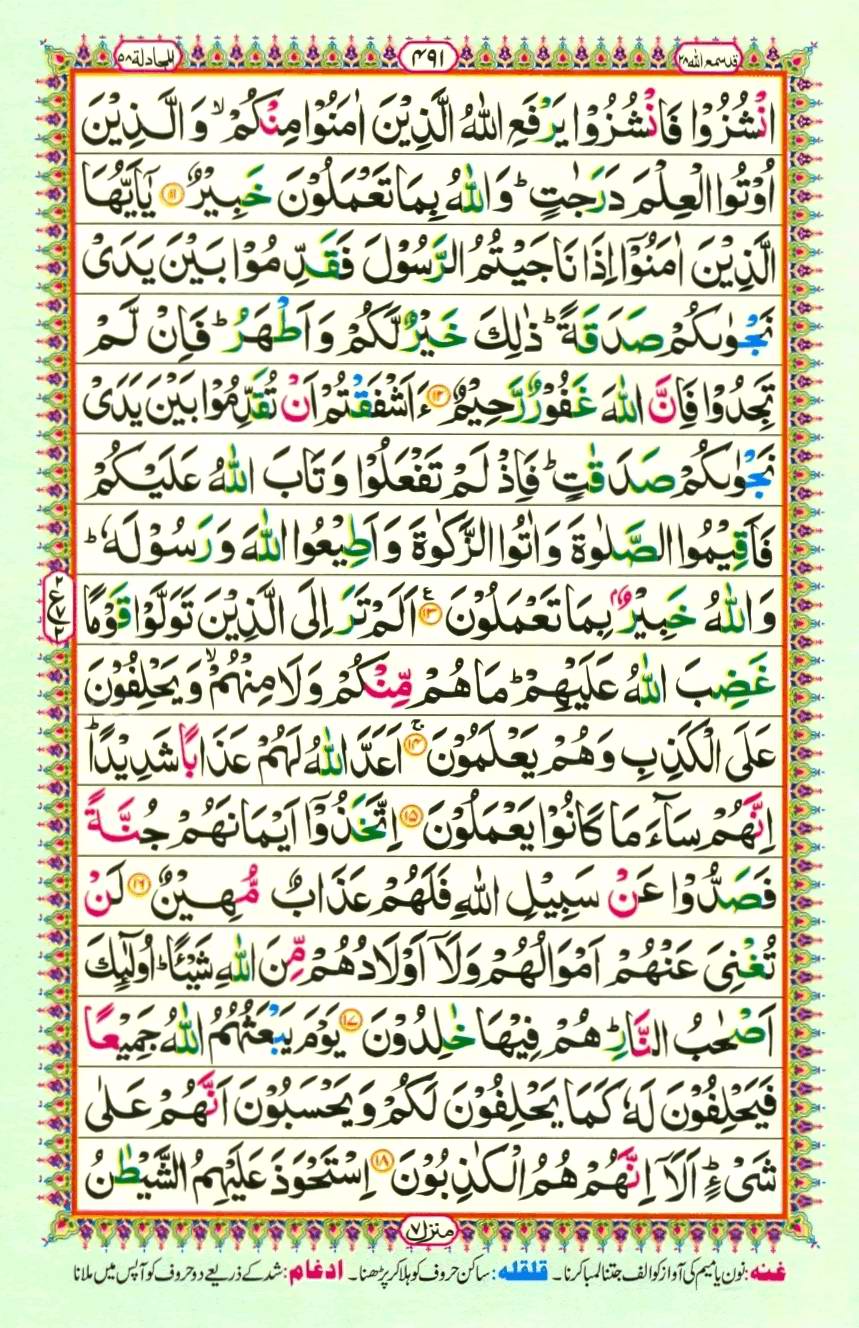 قد سمع الله ٢٨
٤٩١
المجادلة ٥٨
انْشُزُوْا فَانْشُزُوْا يَرْفَعِ اللّٰهُ الَّذِيْنَ اٰمَنُوْا مِنْكُمْ ۙ وَالَّذِيْنَ
اُوْتُوا الْعِلْمَ دَرَجٰتٍ ؕ وَاللّٰهُ بِمَا تَعْمَلُوْنَ خَبِيْرٌ ۝۱۱ يٰۤاَيُّهَا
الَّذِيْنَ اٰمَنُوْۤا اِذَا نَاجَيْتُمُ الرَّسُوْلَ فَقَدِّمُوْا بَيْنَ يَدَىْ
نَجْوٰىكُمْ صَدَقَةً ؕ ذٰلِكَ خَيْرٌ لَّكُمْ وَاَطْهَرُ ؕ فَاِنْ لَّمْ
تَجِدُوْا فَاِنَّ اللّٰهَ غَفُوْرٌ رَّحِيْمٌ ۝۱۲ ءَاَشْفَقْتُمْ اَنْ تُقَدِّمُوْا بَيْنَ يَدَىْ
نَجْوٰىكُمْ صَدَقٰتٍ ؕ فَاِذْ لَمْ تَفْعَلُوْا وَتَابَ اللّٰهُ عَلَيْكُمْ
فَاَقِيْمُوا الصَّلٰوةَ وَاٰتُوا الزَّكٰوةَ وَاَطِيْعُوا اللّٰهَ وَرَسُوْلَهٗ ؕ
وَاللّٰهُ خَبِيْرٌۢ بِمَا تَعْمَلُوْنَ ۝۱۳ ع اَلَمْ تَرَ اِلَى الَّذِيْنَ تَوَلَّوْا قَوْمًا
غَضِبَ اللّٰهُ عَلَيْهِمْ ؕ مَا هُمْ مِّنْكُمْ وَلَا مِنْهُمْ ۙ وَيَحْلِفُوْنَ
عَلَى الْكَذِبِ وَهُمْ يَعْلَمُوْنَ ۝۱۴ ج اَعَدَّ اللّٰهُ لَهُمْ عَذَابًا شَدِيْدًا ؕ
اِنَّهُمْ سَآءَ مَا كَانُوْا يَعْمَلُوْنَ ۝۱۵ اِتَّخَذُوْۤا اَيْمَانَهُمْ جُنَّةً
فَصَدُّوْا عَنْ سَبِيْلِ اللّٰهِ فَلَهُمْ عَذَابٌ مُّهِيْنٌ ۝۱۶ لَنْ
تُغْنِىَ عَنْهُمْ اَمْوَالُهُمْ وَلَاۤ اَوْلَادُهُمْ مِّنَ اللّٰهِ شَيْـًٔا ؕ اُولٰٓئِكَ
اَصْحٰبُ النَّارِ ؕ هُمْ فِيْهَا خٰلِدُوْنَ ۝۱۷ يَوْمَ يَبْعَثُهُمُ اللّٰهُ جَمِيْعًا
فَيَحْلِفُوْنَ لَهٗ كَمَا يَحْلِفُوْنَ لَكُمْ وَيَحْسَبُوْنَ اَنَّهُمْ عَلٰى
شَىْءٍ ؕ اَلَاۤ اِنَّهُمْ هُمُ الْكٰذِبُوْنَ ۝۱۸ اِسْتَحْوَذَ عَلَيْهِمُ الشَّيْطٰنُ
٢ ع ٧ ٢
منزل ٧
غنه: نون یا میم کی آواز کو الف جتنا لمبا کرنا۔ قلقله: ساکن حروف کو ہلا کر پڑھنا۔ ادغام: شد کے ذریعے دو حروف کو آپس میں ملانا